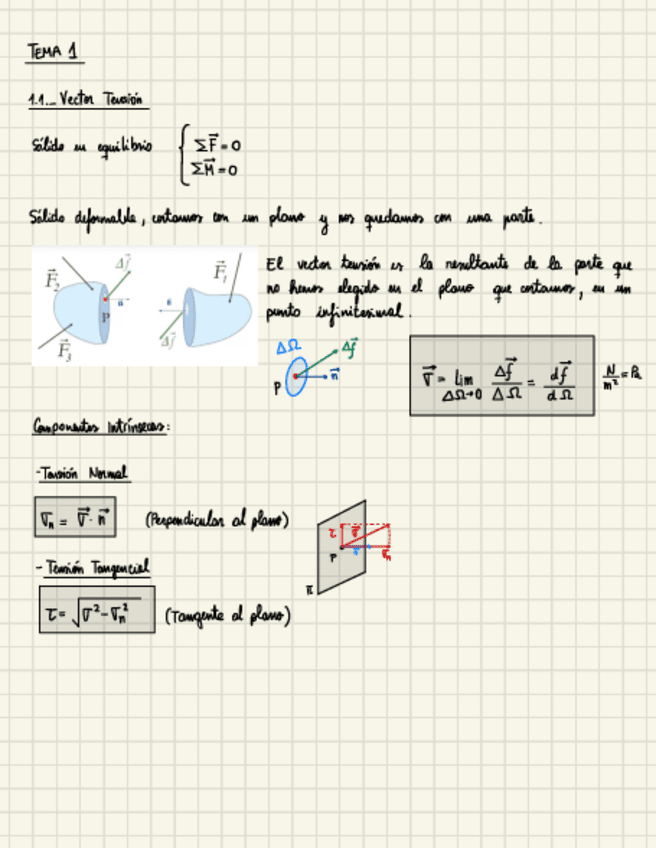 TEMA 1
1.1._ Vector Tensión
Sólido en equilibrio { ΣF⃗ = 0
ΣM⃗ = 0
Sólido deformable, cortamos con un plano y nos quedamos con una parte.
F⃗₂ Δf⃗ P n F⃗₃
F⃗₁ n Δf⃗
El vector tensión es la resultante de la parte que
no hemos elegido en el plano que cortamos, en un
punto infinitesimal.
ΔΩ Δf⃗ n⃗ P
σ⃗ = lim ΔΩ→0 Δf⃗/ΔΩ = df⃗/dΩ N/m² = Pa
Componentes Intrínsecas:
- Tensión Normal
σₙ = σ⃗ · n⃗ (Perpendicular al plano)
τ σ⃗ P n⃗ σₙ π
- Tensión Tangencial
τ = √σ² - σₙ² (Tangente al plano)